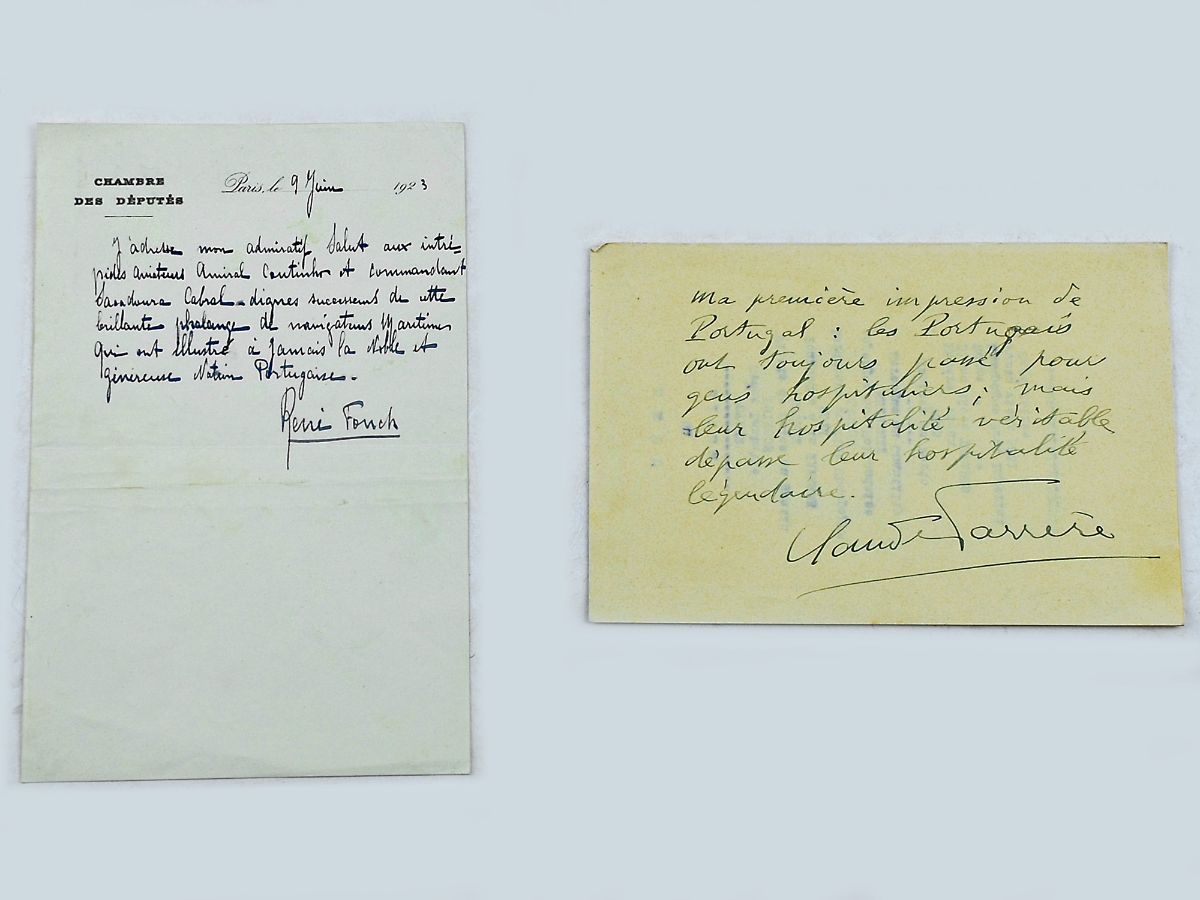 CHAMBRE
DES DÉPUTÉS
Paris, le 9 Juin 1923
J'adresse mon admiratif Salut aux intré-
pides aviateurs Amiral Coutinho et commandant
Saccadoura Cabral - dignes successeurs de cette
brillante phalange de navigateurs Maritimes
qui ont illustré à Jamais la Noble et
généreuse Nation Portugaise.
René Fonck
Ma première impression de
Portugal : les Portugais
ont toujours passé pour
gens hospitaliers; mais
leur hospitalité véritable
dépasse leur hospitalité
légendaire.
Claude Farrère